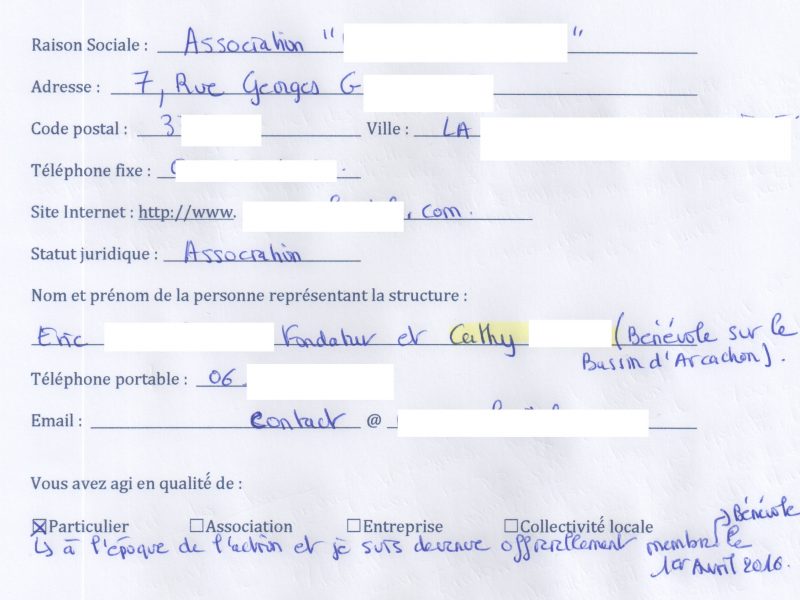 Raison Sociale : Association " "
Adresse : 7, Rue Georges G
Code postal : 3 Ville : LA
Téléphone fixe :
Site Internet : http://www. .com.
Statut juridique : Association
Nom et prénom de la personne représentant la structure :
Eric Fondateur et Cathy (Bénévole sur le
Bassin d'Arcachon).
Téléphone portable : 06.
Email : contact @
Vous avez agi en qualité de :
☒Particulier ☐Association ☐Entreprise ☐Collectivité locale
↳ à l'époque de l'action et je suis devenue officiellement membre le
→ Bénévole
1er Avril 2016.